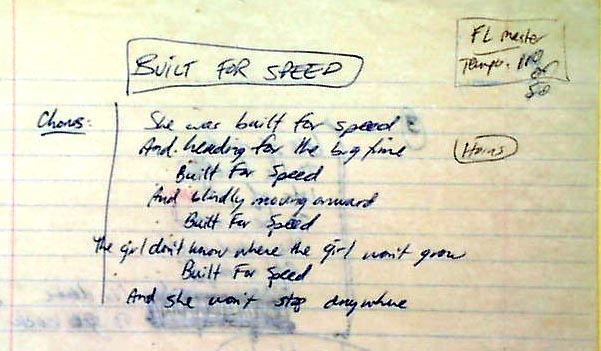 BUILT FOR SPEED
FL master
Tempo: 100
or
50
Chorus:
She was built for speed
And heading for the big time
Horns
Built For Speed
And blindly moving onward
Built For Speed
The girl don't know where the girl won't grow
Built For Speed
And she won't stop anywhere